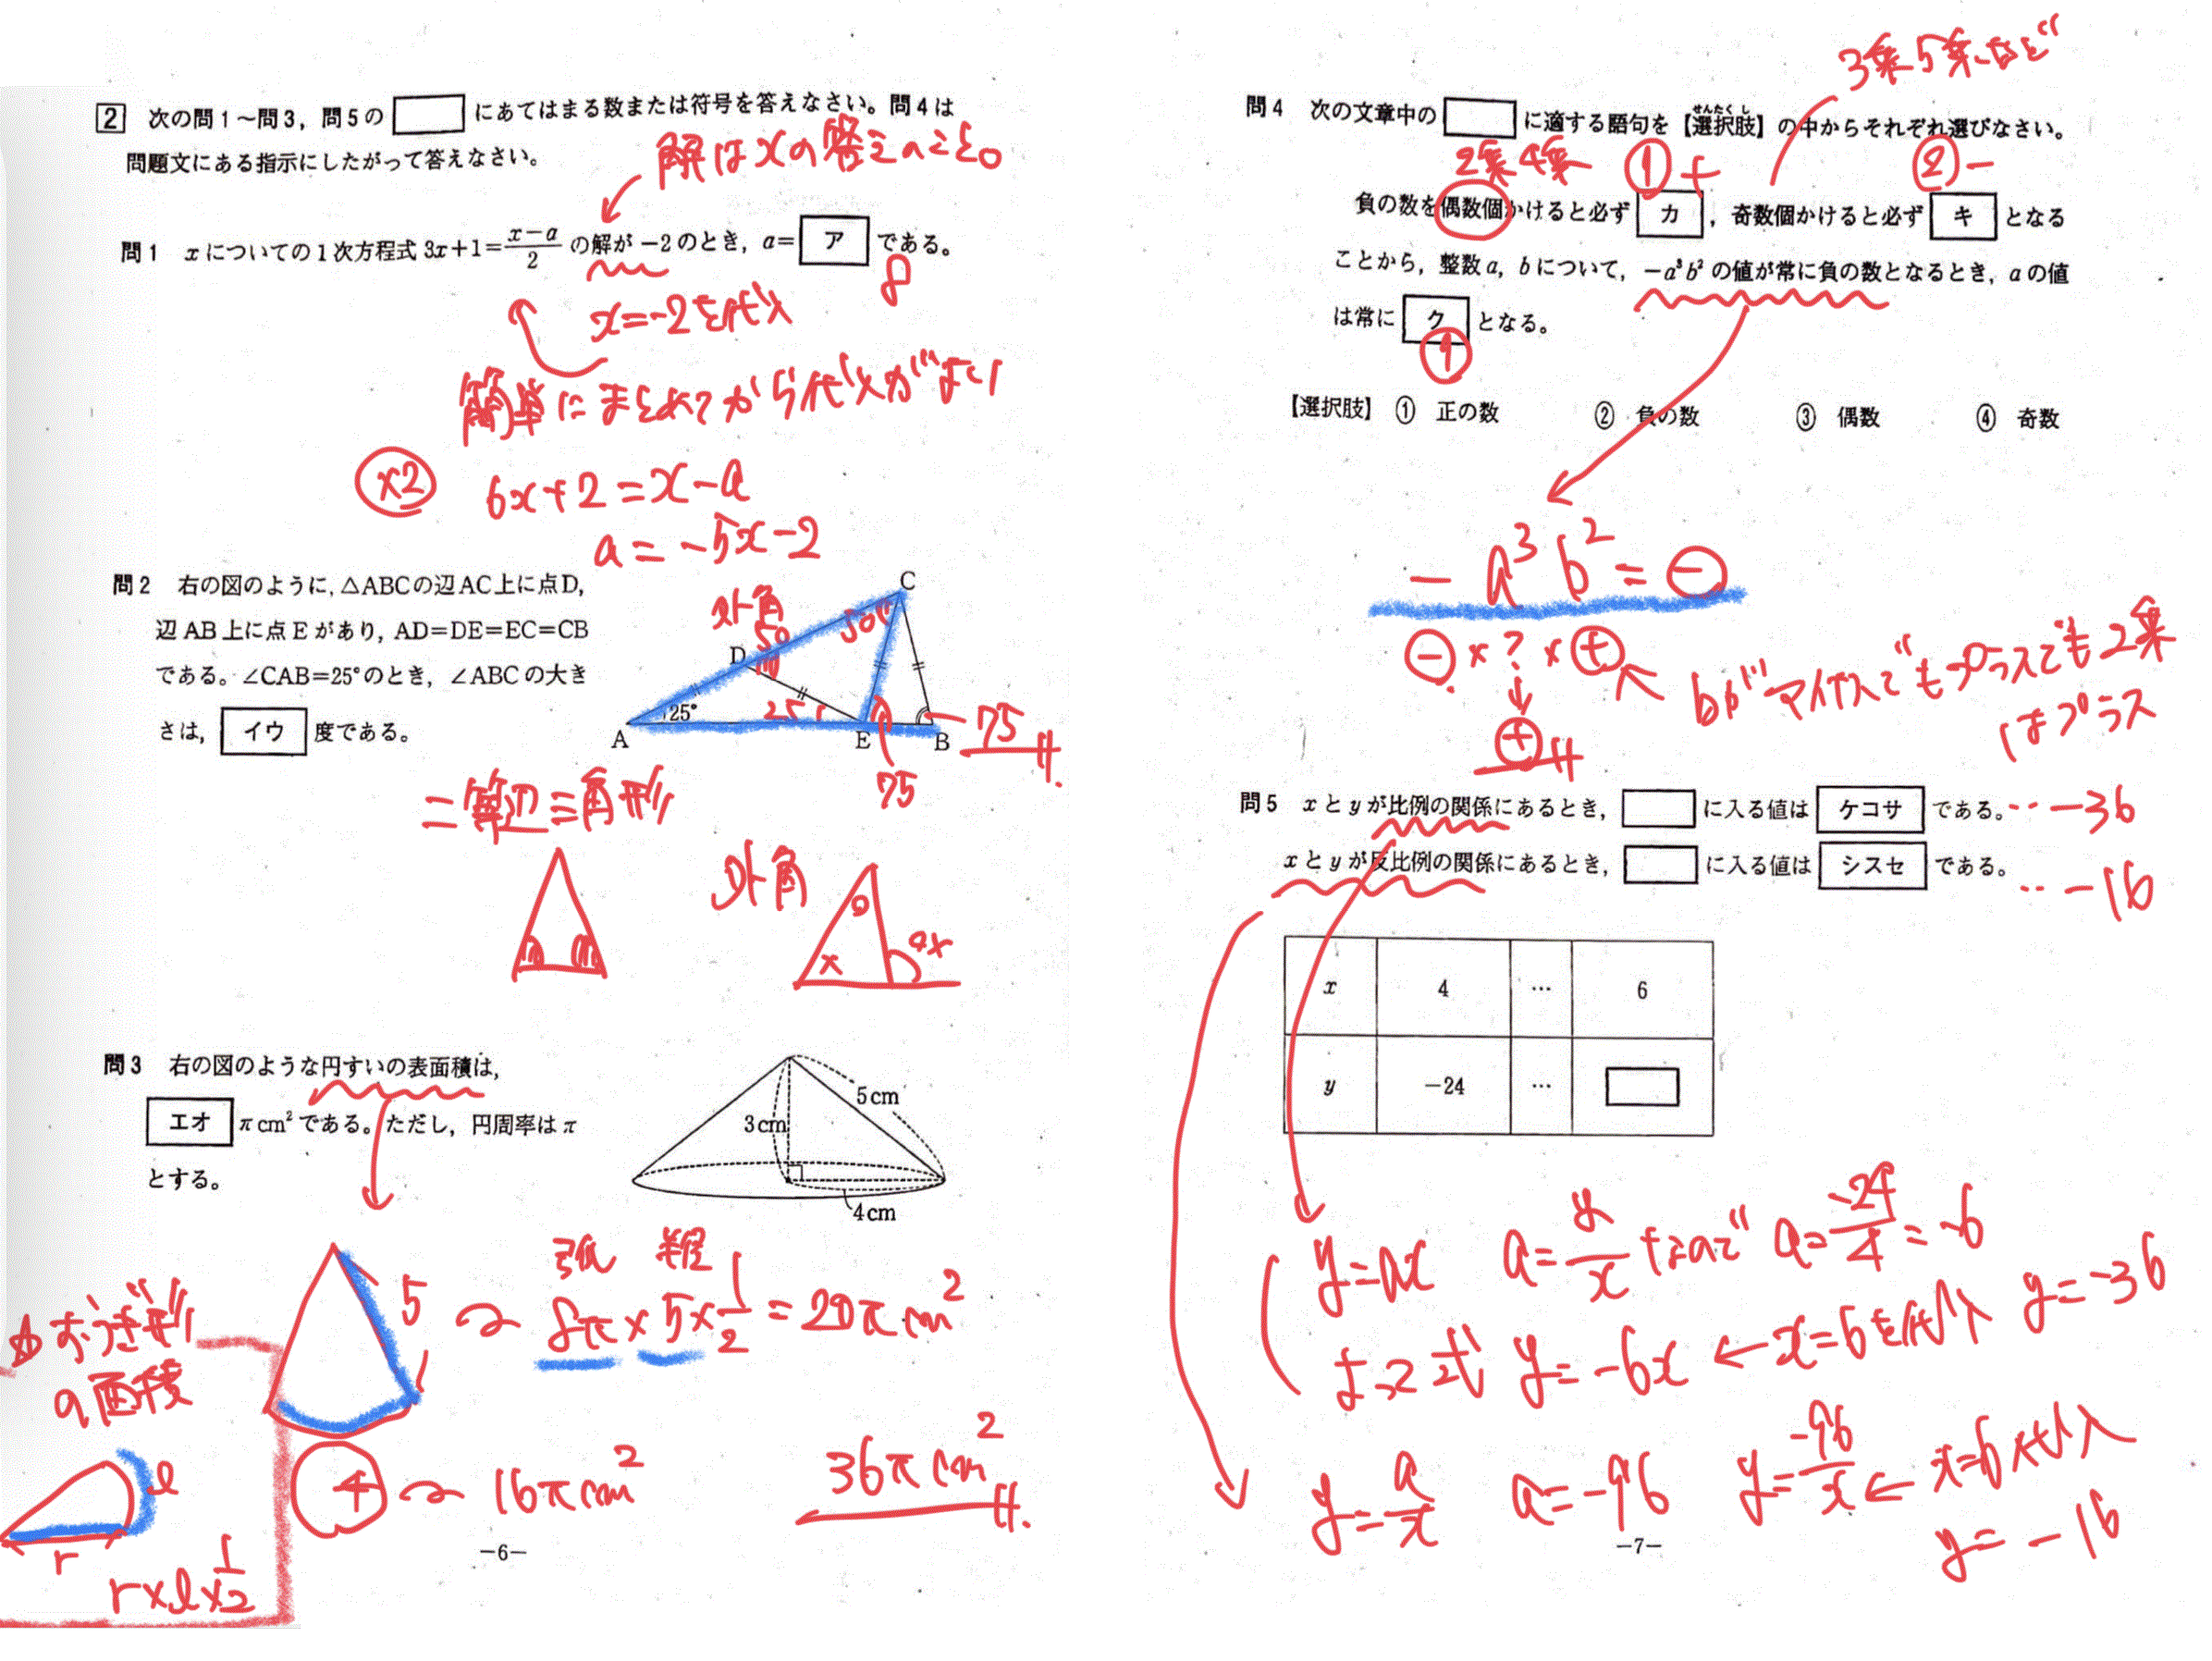 2 次の問1～問3，問5の □ にあてはまる数または符号を答えなさい。問4は
問題文にある指示にしたがって答えなさい。
解はxの答えのこと。
問1 xについての1次方程式 3x+1=(x-a)/2 の解が −2 のとき，a= ア である。
8
x=-2を代入
簡単にまとめてから代入がよい
×2 6x+2=x-a
a=-5x-2
問2 右の図のように，△ABCの辺AC上に点D，
辺AB上に点Eがあり，AD=DE=EC=CB
である。∠CAB=25°のとき，∠ABCの大き
さは， イウ 度である。
外角
50
50
C
D
25°
25
A
E
B
75
75
二等辺三角形
外角
○
×
○×
問3 右の図のような円すいの表面積は，
エオ πcm² である。ただし，円周率はπ
とする。
5cm
3cm
4cm
弧 半径
5
8π×5×1/2=20πcm²
おうぎ形
の面積
4
16πcm²
36πcm²
l
r
r×l×1/2
−6−
3乗5乗など
問4 次の文章中の □ に適する語句を【選択肢】の中からそれぞれ選びなさい。
せんたくし
2乗4乗 ① + ② −
負の数を偶数個かけると必ず カ ，奇数個かけると必ず キ となる
ことから，整数a，bについて，−a³b² の値が常に負の数となるとき，aの値
は常に ク となる。
①
【選択肢】 ① 正の数 ② 負の数 ③ 偶数 ④ 奇数
−a³b²=⊖
⊖×?×⊕
bがマイナスでもプラスでも2乗
はプラス
⊕
問5 xとyが比例の関係にあるとき， □ に入る値は ケコサ である。 … −36
xとyが反比例の関係にあるとき， □ に入る値は シスセ である。 … −16
x 4 … 6
y −24 … □
y=ax a=y/x なので a=-24/4=-6
よって式 y=-6x ← x=6を代入 y=-36
y=a/x a=-96 y=-96/x ← x=6代入
y=-16
−7−